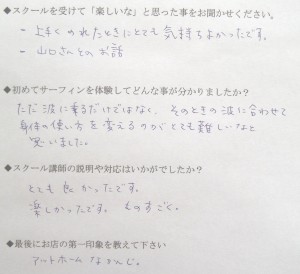 ◆スクールを受けて「楽しいな」と思った事をお聞かせください。
- 上手くのれたときにとても気持ちよかったです。
- 山口さんとのお話
◆初めてサーフィンを体験してどんな事が分かりましたか？
ただ波に乗るだけではなく、そのときの波に合わせて
身体の使い方を変えるのがとても難しいなと
思いました。
◆スクール講師の説明や対応はいかがでしたか？
とても良かったです。
楽しかったです。ものすごく。
◆最後にお店の第一印象を教えて下さい
アットホームなかんじ。